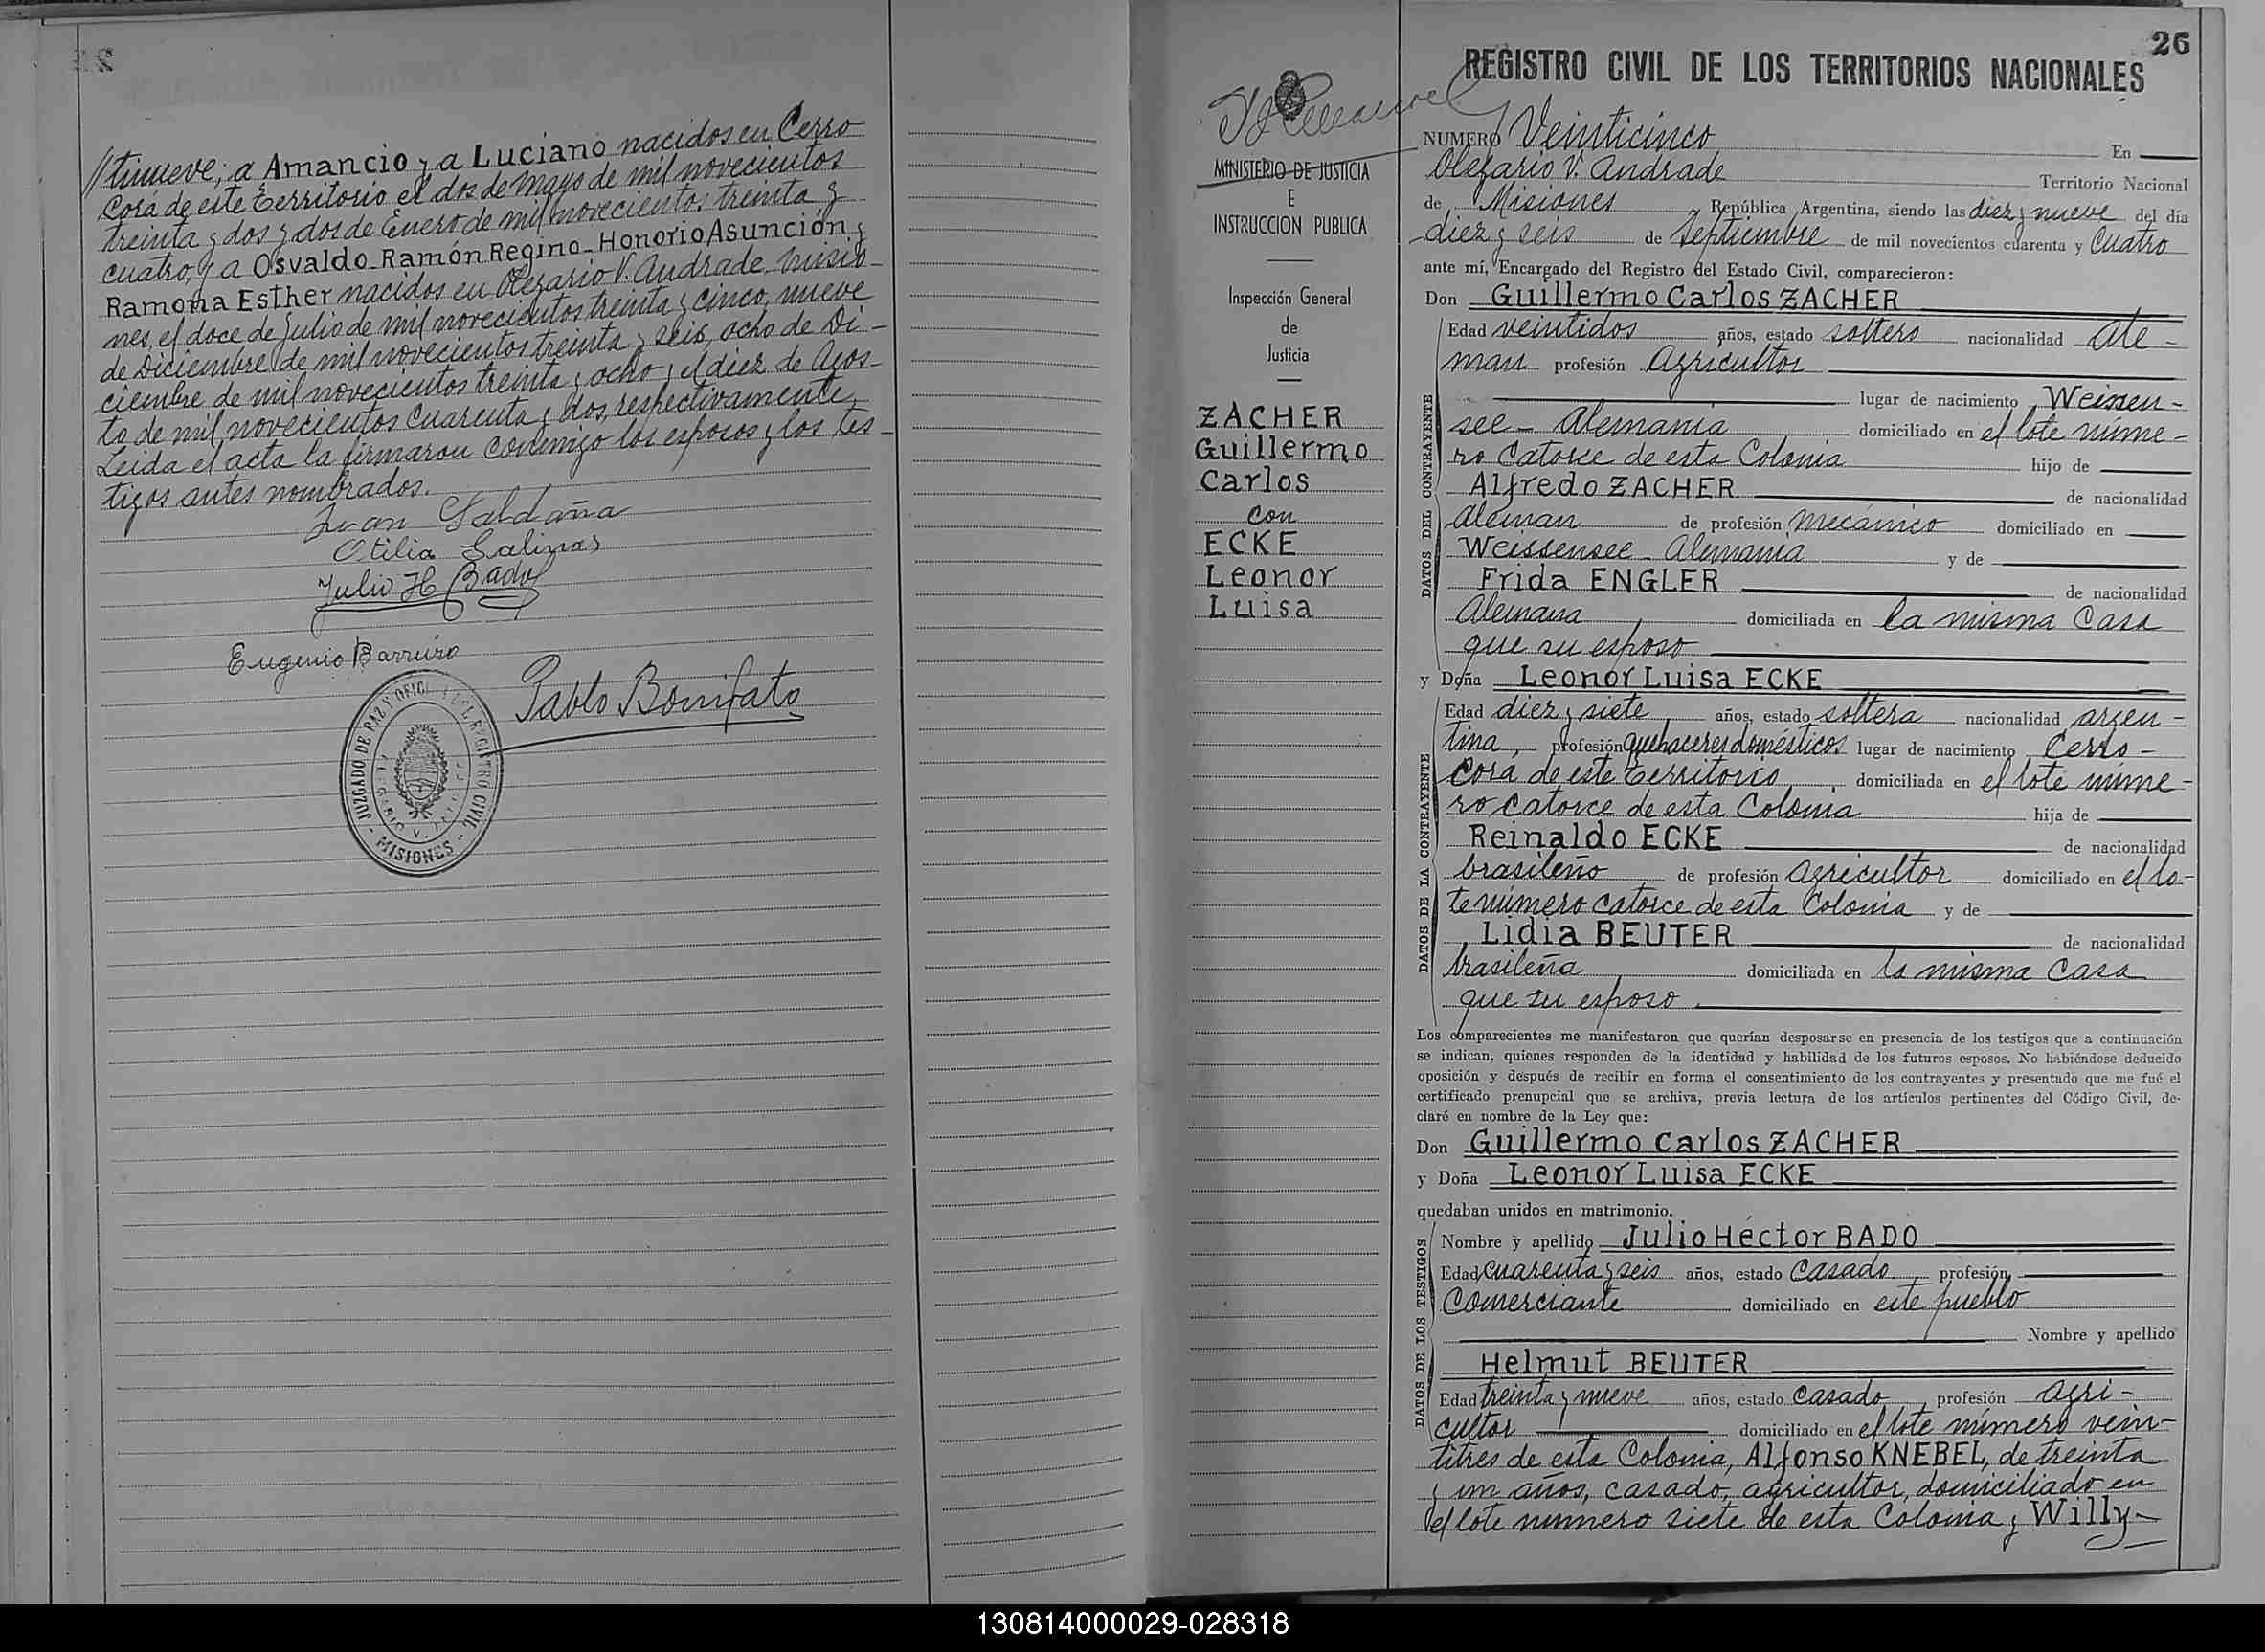 //tinueve; a Amancio y a Luciano nacidos en Cerro
Corá de este territorio el dos de Mayo de mil novecientos
treinta y dos y dos de Enero de mil novecientos treinta y
cuatro, y a Osvaldo - Ramón Regino - Honorio Asunción y
Ramona Esther nacidos en Olegario V. Andrade, Misio-
nes, el doce de Julio de mil novecientos treinta y cinco, nueve
de Diciembre de mil novecientos treinta y seis, ocho de Di-
ciembre de mil novecientos treinta y ocho y el diez de Agos-
to de mil novecientos cuarenta y dos, respectivamente.
Leida el acta la firmaron conmigo los esposos y los tes-
tigos antes nombrados.
Juan Saldaña
Otilia Salinas
Julio H Bado
Eugenio Barreiro
Pablo Bonifato
JUZGADO DE PAZ Y OFICINA DEL REGISTRO CIVIL
MISIONES
26
REGISTRO CIVIL DE LOS TERRITORIOS NACIONALES
MINISTERIO DE JUSTICIA
E
INSTRUCCION PUBLICA
Inspección General
de
Justicia
ZACHER
Guillermo
Carlos
con
ECKE
Leonor
Luisa
NUMERO Veinticinco En
Olegario V. Andrade Territorio Nacional
de Misiones, República Argentina, siendo las diez y nueve del día
diez y seis de Septiembre de mil novecientos cuarenta y cuatro
ante mí, Encargado del Registro del Estado Civil, comparecieron:
Don Guillermo Carlos ZACHER
DATOS DEL CONTRAYENTE
Edad veintidos años, estado soltero nacionalidad ale-
man profesión agricultor
lugar de nacimiento Weissen-
see - Alemania domiciliado en el lote núme-
ro catorce de esta Colonia hijo de
Alfredo ZACHER de nacionalidad
aleman de profesión mecánico domiciliado en
Weissensee - Alemania y de
Frida ENGLER de nacionalidad
alemana domiciliada en la misma casa
que su esposo
y Doña Leonor Luisa ECKE
DATOS DE LA CONTRAYENTE
Edad diez y siete años, estado soltera nacionalidad argen-
tina, profesión quehaceres domésticos lugar de nacimiento Cerro-
Corá de este territorio domiciliada en el lote núme-
ro catorce de esta Colonia hija de
Reinaldo ECKE de nacionalidad
brasileño de profesión agricultor domiciliado en el lo-
te número catorce de esta Colonia y de
Lidia BEUTER de nacionalidad
brasileña domiciliada en la misma casa
que su esposo.
Los comparecientes me manifestaron que querían desposarse en presencia de los testigos que a continuación
se indican, quienes responden de la identidad y habilidad de los futuros esposos. No habiéndose deducido
oposición y después de recibir en forma el consentimiento de los contrayentes y presentado que me fué el
certificado prenupcial que se archiva, previa lectura de los artículos pertinentes del Código Civil, de-
claré en nombre de la Ley que:
Don Guillermo Carlos ZACHER
y Doña Leonor Luisa ECKE
quedaban unidos en matrimonio.
DATOS DE LOS TESTIGOS
Nombre y apellido Julio Héctor BADO
Edad cuarenta y seis años, estado casado, profesión
comerciante domiciliado en este pueblo
Nombre y apellido
Helmut BEUTER
Edad treinta y nueve años, estado casado, profesión agri-
cultor domiciliado en el lote número vein-
titres de esta Colonia, Alfonso KNEBEL, de treinta
y un años, casado, agricultor, domiciliado en
el lote número siete de esta Colonia y Willy-
130814000029-028318